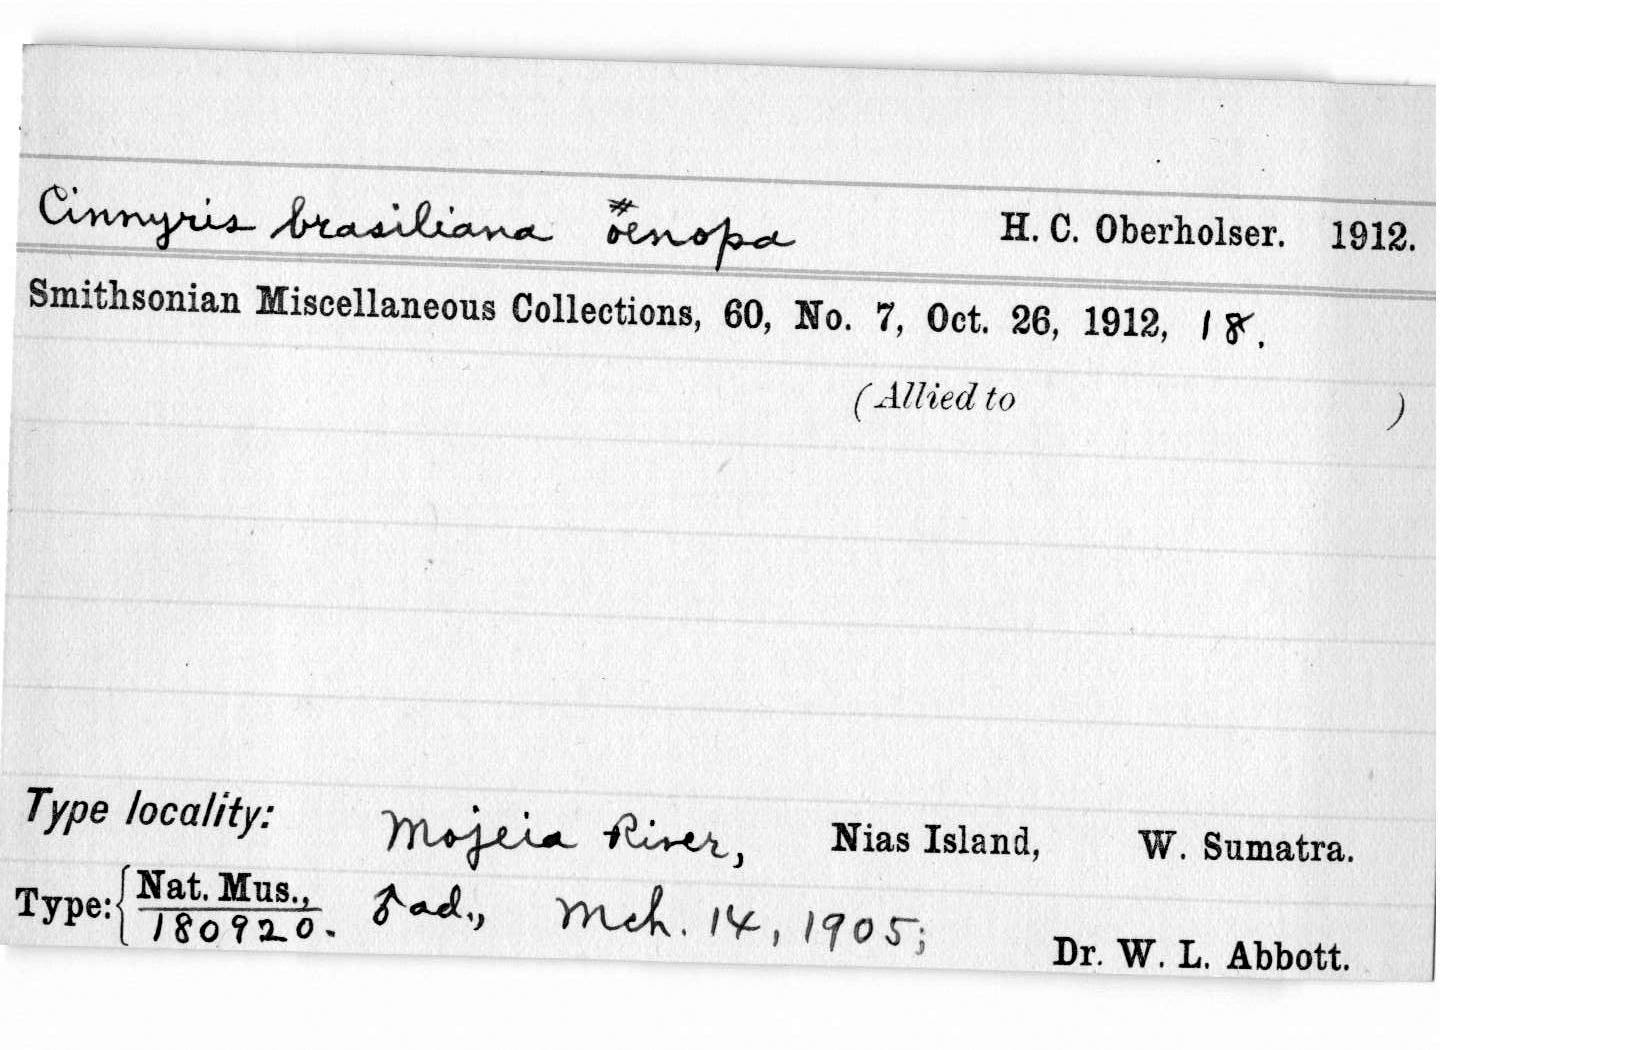 Cinnyris brasiliana #oenopa H. C. Oberholser. 1912.
Smithsonian Miscellaneous Collections, 60, No. 7, Oct. 26, 1912, 18.
(Allied to )
Type locality: Mojeia River, Nias Island, W. Sumatra.
Type: { Nat. Mus., 180920. ♂ ad., Mch. 14, 1905; Dr. W. L. Abbott.